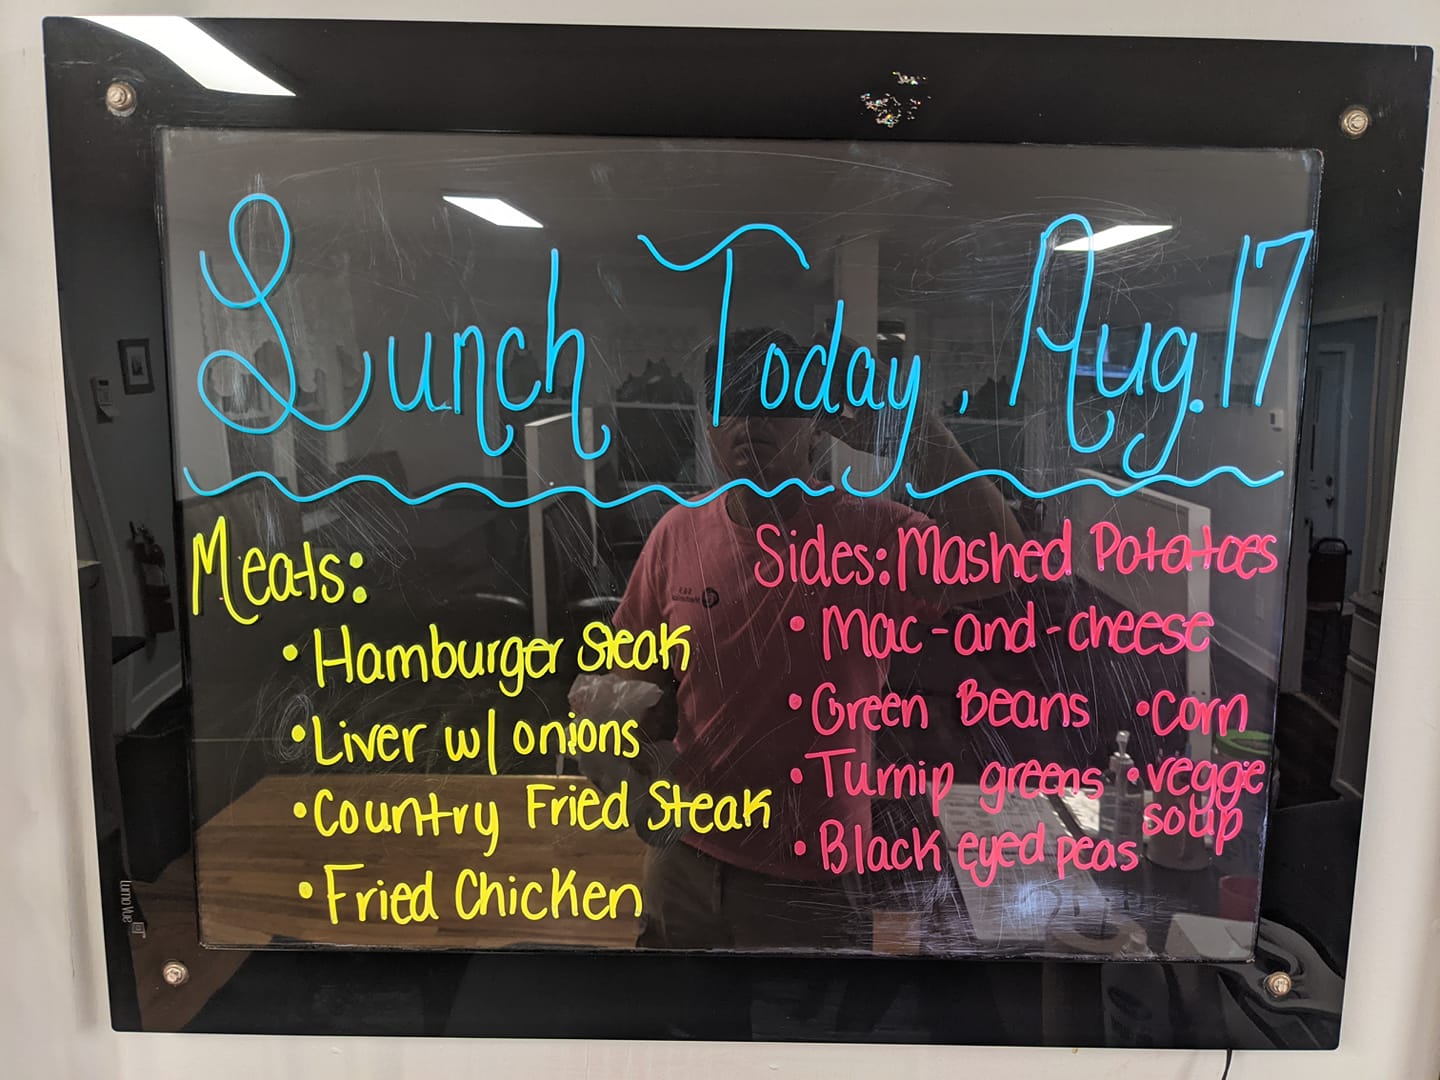 Lunch Today, Aug. 17
Meats:
• Hamburger Steak
• Liver w/ onions
• Country Fried Steak
• Fried Chicken
Sides: Mashed Potatoes
• Mac-and-cheese
• Green Beans
• Turnip greens
• Black eyed peas
• Corn
• veggie
soup
Lumo Vue